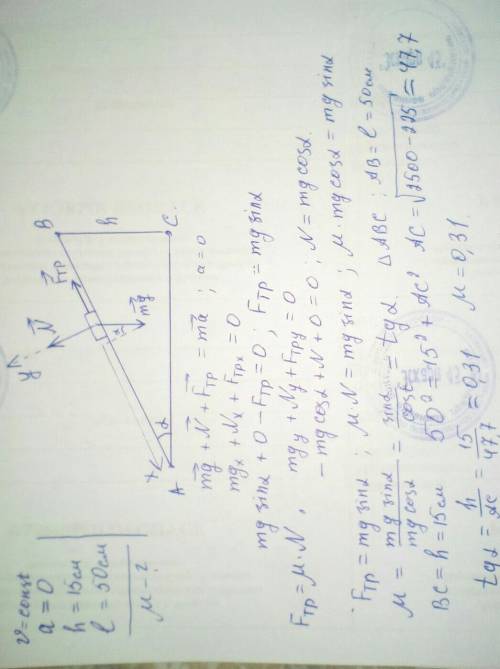 v = const
a = 0
h = 15 см
l = 50 см
μ - ?
y
N⃗
F⃗тр
B
h
α
m⃗g
x
α
A
C
m⃗g + N⃗ + F⃗тр = m⃗a ; a = 0
mgx + Nx + Fтрx = 0
mg sinα + 0 - Fтр = 0 ; Fтр = mg sinα
Fтр = μ·N , mgy + Ny + Fтрy = 0
- mg cosα + N + 0 = 0 ; N = mg cosα.
Fтр = mg sinα ; μ·N = mg sinα ; μ·mg cosα = mg sinα
μ = mg sinα / mg cosα = sinα / cosα = tgα. △ABC ; AB = l = 50 см
BC = h = 15 см 50² = 15² + AC² AC = √2500-225 = 47,7
tgα = h / AC = 15 / 47,7 = 0,31 μ = 0,31.